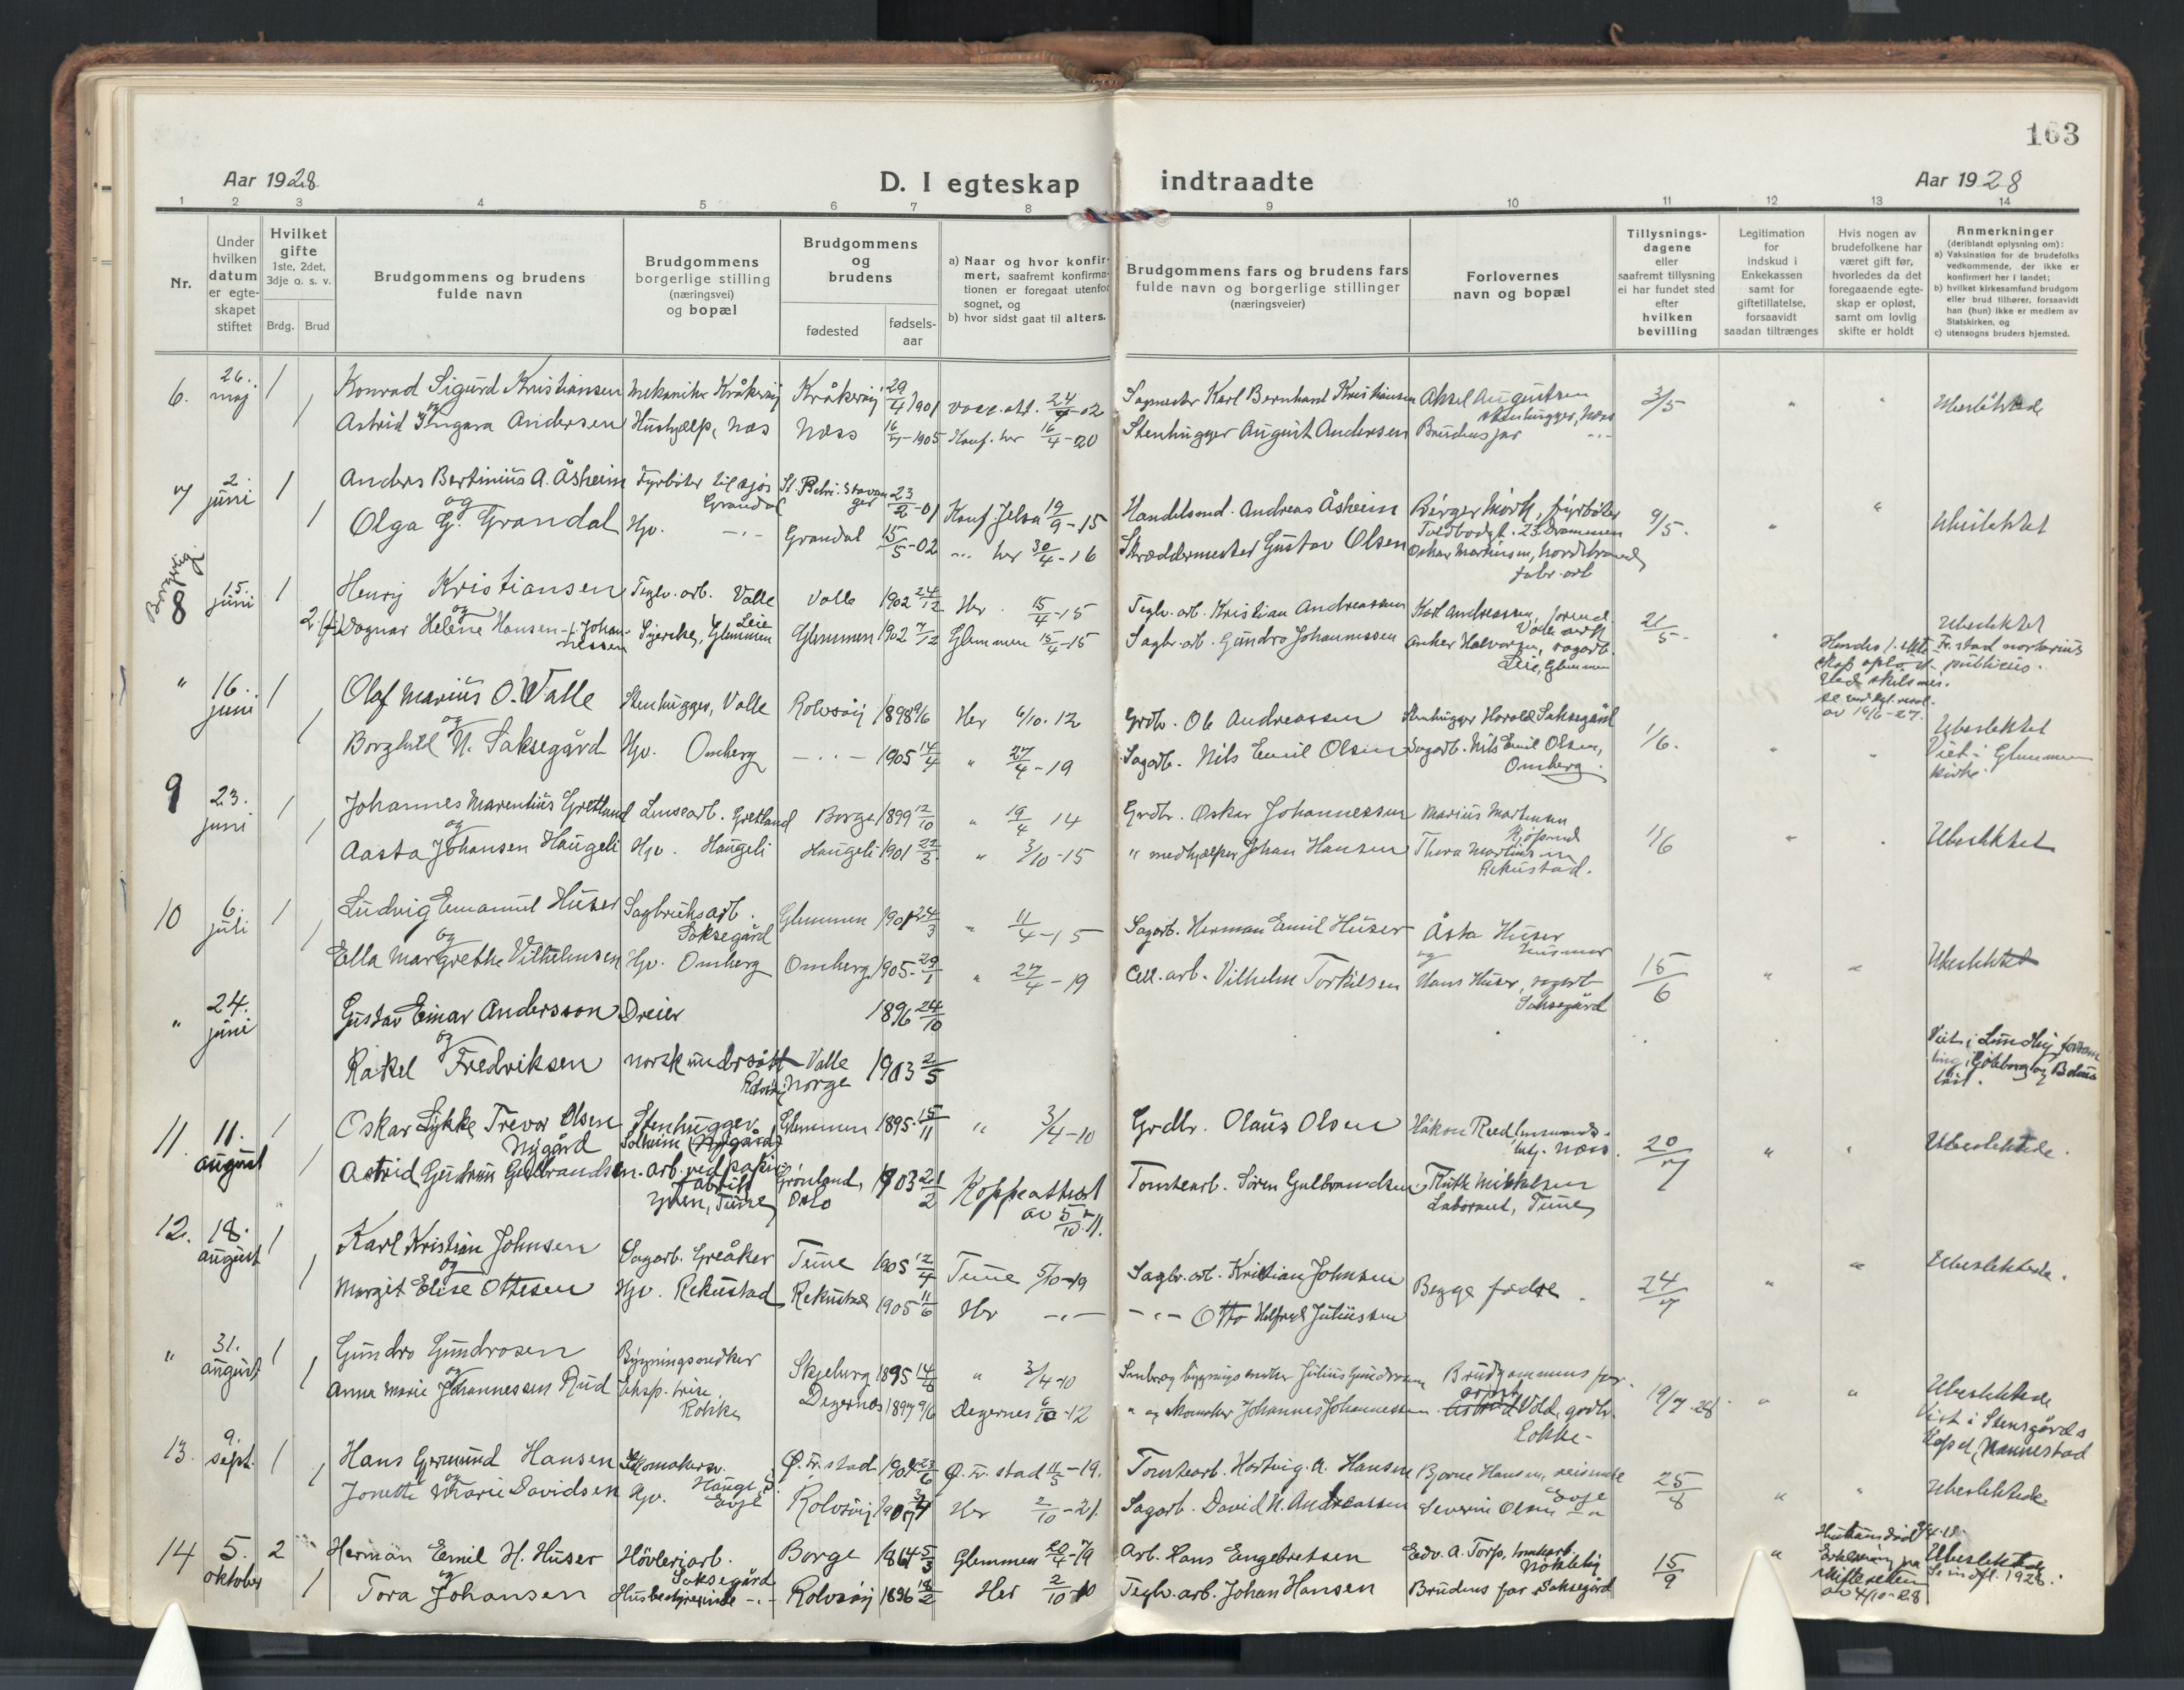 163
Aar 1928
D. I egteskap indtraadte
Aar 1928
1 2 3 4 5 6 7 8 9 10 11 12 13 14
Nr.
Under hvilken datum er egteskapet stiftet
Hvilket gifte 1ste, 2det, 3dje o. s. v.
Brdg. Brud
Brudgommens og brudens fulde navn
Brudgommens borgerlige stilling (næringsvei) og bopæl
Brudgommens og brudens
fødested
fødselsaar
a) Naar og hvor konfirmert, saafremt konfirmationen er foregaat utenfor sognet, og
b) hvor sidst gaat til alters.
Brudgommens fars og brudens fars fulde navn og borgerlige stillinger (næringsveier)
Forlovernes navn og bopæl
Tillysningsdagene eller saafremt tillysning ei har fundet sted efter hvilken bevilling
Legitimation for indskud i Enkekassen samt for giftetillatelse, forsaavidt saadan tiltrænges
Hvis nogen av brudefolkene har været gift før, hvorledes da det foregaaende egteskap er opløst, samt om lovlig skifte er holdt
Anmerkninger (deriblandt oplysning om):
a) Vaksination for de brudefolks vedkommende, der ikke er konfirmert her i landet;
b) hvilket kirkesamfund brudgom eller brud tilhører, forsaavidt han (hun) ikke er medlem av Statskirken, og
c) utensogns bruders hjemsted.
6. 26. maj 1 Konrad Sigurd Kristiansen Mekaniker Kråkerøy Kråkerøy 29/4 1901 vacc. att. 24/7-02 Sagmester Karl Bernhard Kristiansen Aksel Augustsen stenhugger, Næs 3/5 " " Ubeslektede
og
1 Astrid Ingara Andersen Hushjælp, Næs Næss 16/4-1905 Konf. her 16/4-20 Stenhugger August Andersen Brudens far -"-
7 2. juni 1 Anders Bertinius A. Åsheim Fyrbøter til sjøs Grandal St. Petri. Stavanger 23/2-01 Konf. Jelsa 19/9-15 Handelsmd. Andreas Åsheim Birger Mørk, fyrbøter Toldbodgt. 23. Drammen 9/5. " " Ubeslektet
og
1 Olga G. Grandal Hjv. -"- Grandal 15/5-02 -"- her 30/4-16 Skræddermester Gustav Olsen Oskar Martinsen, Nordstrand, fabr. arb
Borgerlig.
8 15. juni 1 Henry Kristiansen Teglv. arb. Valle Valle 1902 24/12 Her 15/4-15 Teglv. arb. Kristian Andreassen Karl Andreassen, formd. Valle 21/5 " Ubeslektet
og
2 Dagnar Helene Hansen f. Johannessen Syerske, Leie Glemmen Glemmen 1902 7/12 Glemmen 15/4-15 Sagbr. arb. Gundro Johannessen Anker Halvorsen, sagarb. Leie, Glemmen
Hendes 1. ekteskap opløst ved skilsmis. se ved kgl. resol. av 16/6-27.
Fr. stad notarius publicus.
" 16. juni 1 Olaf Marius O. Valle Stenhugger, Valle Rolvsøy 1898 9/6 Her 6/10-12 Grdbr. Ole Andreassen Stenhugger Harald Saksegård 1/6. " " Ubeslektet Viet i Glemmen kirke.
og
1 Borghild N. Saksegård Hjv. Omberg -"- 1905 14/4 " 27/4-19 Sagarb. Nils Emil Olsen Sagarb. Nils Emil Olsen, Omberg.
9 23. juni 1 Johannes Marentius Gretland Lensearb. Gretland Borge 1899 12/10 " 19/4 14 Grdbr. Oskar Johannessen Marius Martinsen 1/6 " . Ubeslektet
og
1 Aasta Johansen Haugeli Hjv. Haugeli Haugeli 1901 22/3 " 3/10-15 " medhjælper Johan Hansen Thora Martinsen Rekustad.
10 6. juli 1 Ludvig Emanuel Huser Sagbruksarb. Saksegård Glemmen 1901 24/3 " 11/4-15 Sagarb. Herman Emil Huser Åsta Huser husmor
og
1 Ella Margrethe Vilhelmsen Hjv. Omberg Omberg 1905-29/1 " 27/4-19 Cell. arb. Vilhelm Torkilsen og Hans Huser, sagarb Saksegård 15/6 " " Ubeslektet
" 24. juni Gustav Einar Andersson Dreier 1896 24/10
og
Rakel Fredriksen norsk undersått Rolvsøy Valle Norge 1903 2/5 Viet i Lundby forsamling i Göteborg og Bohus län.
11. 11. august 1 Oskar Lykke Trevor Olsen Nygård Stenhugger Solheim (Nygård) Glemmen 1895-15/11 " 3/4-10 Grdbr. Olaus Olsen Håkon Reed Næss. 20/7 " " Ubeslektede.
1 Astrid Gudrun Gulbrandsen arb. ved papirfabrikk Yven, Tune Grønland, Oslo 1903 21/2 Koppeattest av 5/10-11. Tomtearb. Søren Gulbrandsen Ruth Mikkelsen Laborant, Tune
12. 18. august 1 Karl Kristian Johnsen Sagarb. Greåker Tune 1905 12/4 Tune 5/10-19 Sagbr. arb. Kristian Johnsen Begge fædre 24/7 " " Ubeslektede.
og
1 Margit Elise Ottesen Hjv. Rekustad Rekustad 1905 11/6 Her -"- -"- Otto Hilfred Juliussen
" 31. august 1 Gundro Gundrosen Bygningssnekker Skjeberg 1895 14/6 " 3/4-10 Småbr. og bygningssnekker Julius Gundrosen Brudgommens far 19/7-28 " " Ubeslektede
og
1 Anna Marie Johannessen Rud Rokke Degernes 1897 9/6 Degernes 6/10-12 " og skomaker Johannes Johannessen Vold, grdbr. Rokke
Viet i Stensgårds Kapel, Nannestad
13. 9. sept. 1 Hans Germund Hansen Skomakersv. Hauge, S. Ø. Fr. stad 1901 23/6 Ø. Fr. stad 11/5-19. Tomtearb. Hartvig. A. Hansen Bjarne Hansen, reisende Evje 25/8 " " Ubeslektede
og
1 Jonette Marie Davidsen Hjv. Evje Rolvsøy Her 2/10-21. Sagarb. David N. Andreassen Severin Olsen -"-
14 5. oktober 2 Herman Emil H. Huser Høvleriarb. Saksegård Borge 1864 5/3 Glemmen 20/4-79 Arb. Hans Engebretsen Edv. A. Torp, tomtearb. Nøkleby 15/9 " Ubeslektede
og
1 Tora Johansen Husbestyrerinde -"- Rolvsøy 1896 18/2 Her 2/10-10 Teglv. arb. Johan Hansen Brudens far Saksegård
Erklæring fra skifteretten av 4/10-28